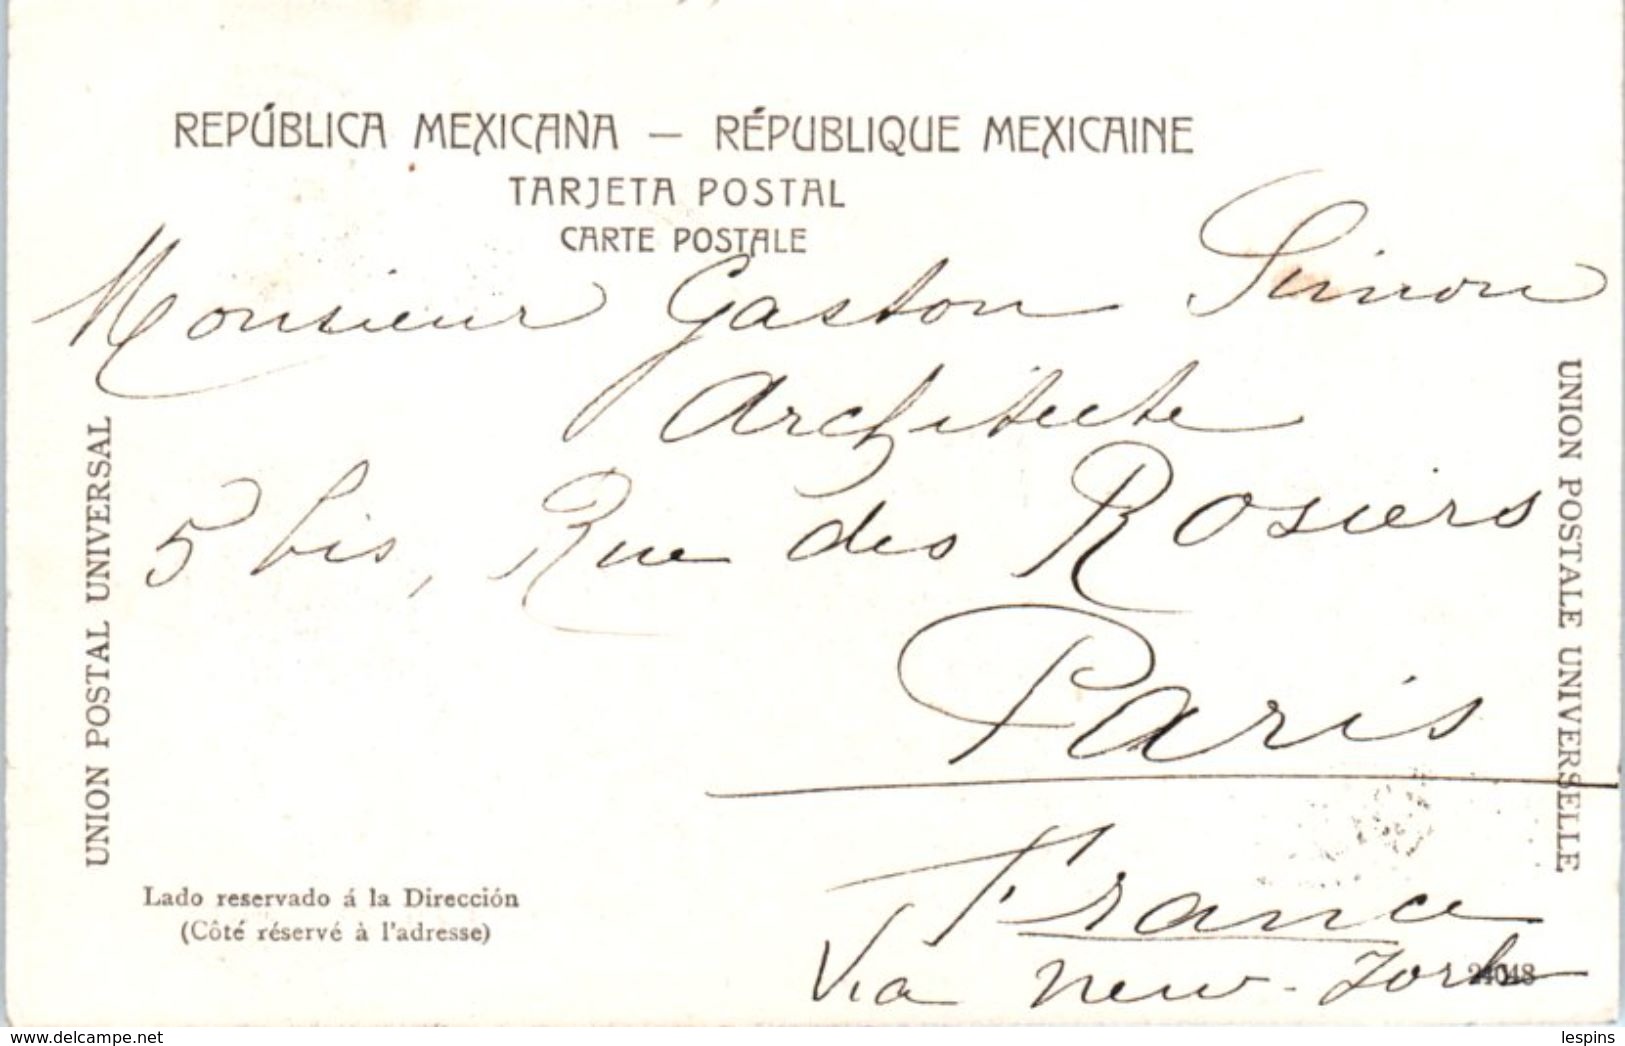 REPÚBLICA MEXICANA — RÉPUBLIQUE MEXICAINE
TARJETA POSTAL
CARTE POSTALE
Monsieur Gaston Simon
Architecte
5 bis, Rue des Rosiers
Paris
France
Via New-York
UNION POSTAL UNIVERSAL
UNION POSTALE UNIVERSELLE
Lado reservado á la Dirección
(Côté réservé à l'adresse)
24048
www.delcampe.net
lespins